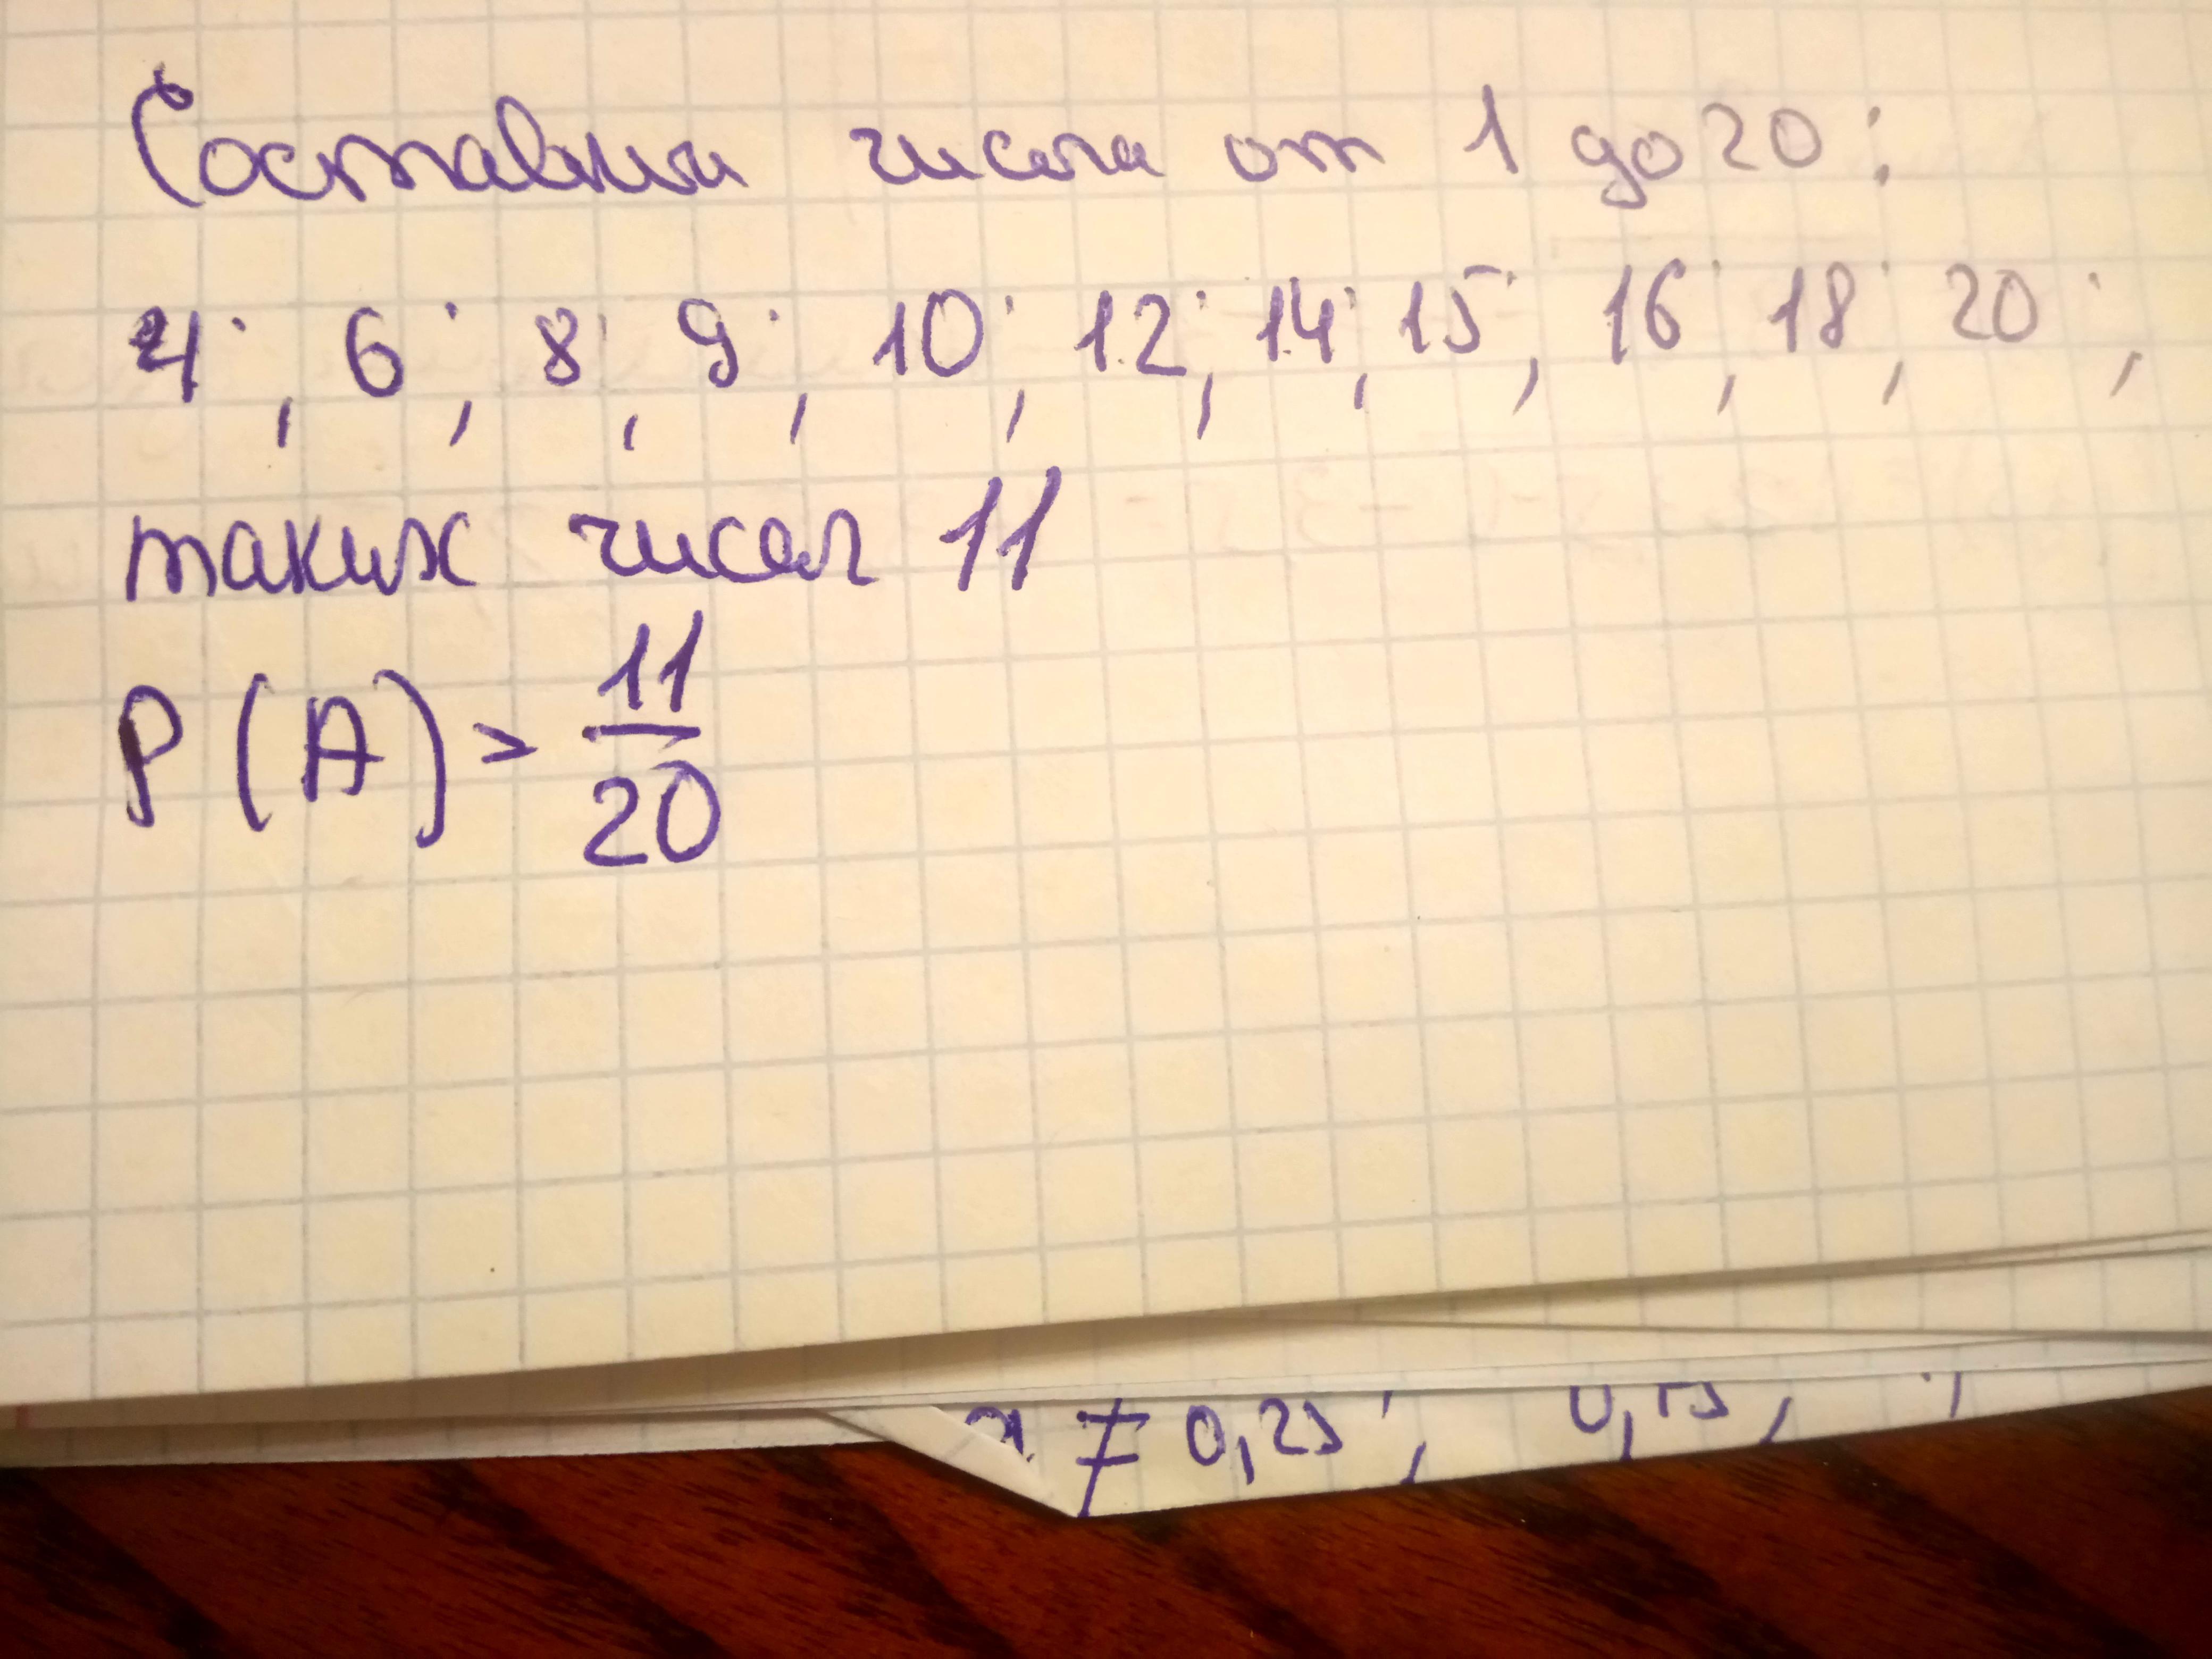 Составных числа от 1 до 20:
4; 6; 8; 9; 10; 12; 14; 15; 16; 18; 20;
таких чисел 11
P(A) = 11/20
≠ 0,25;